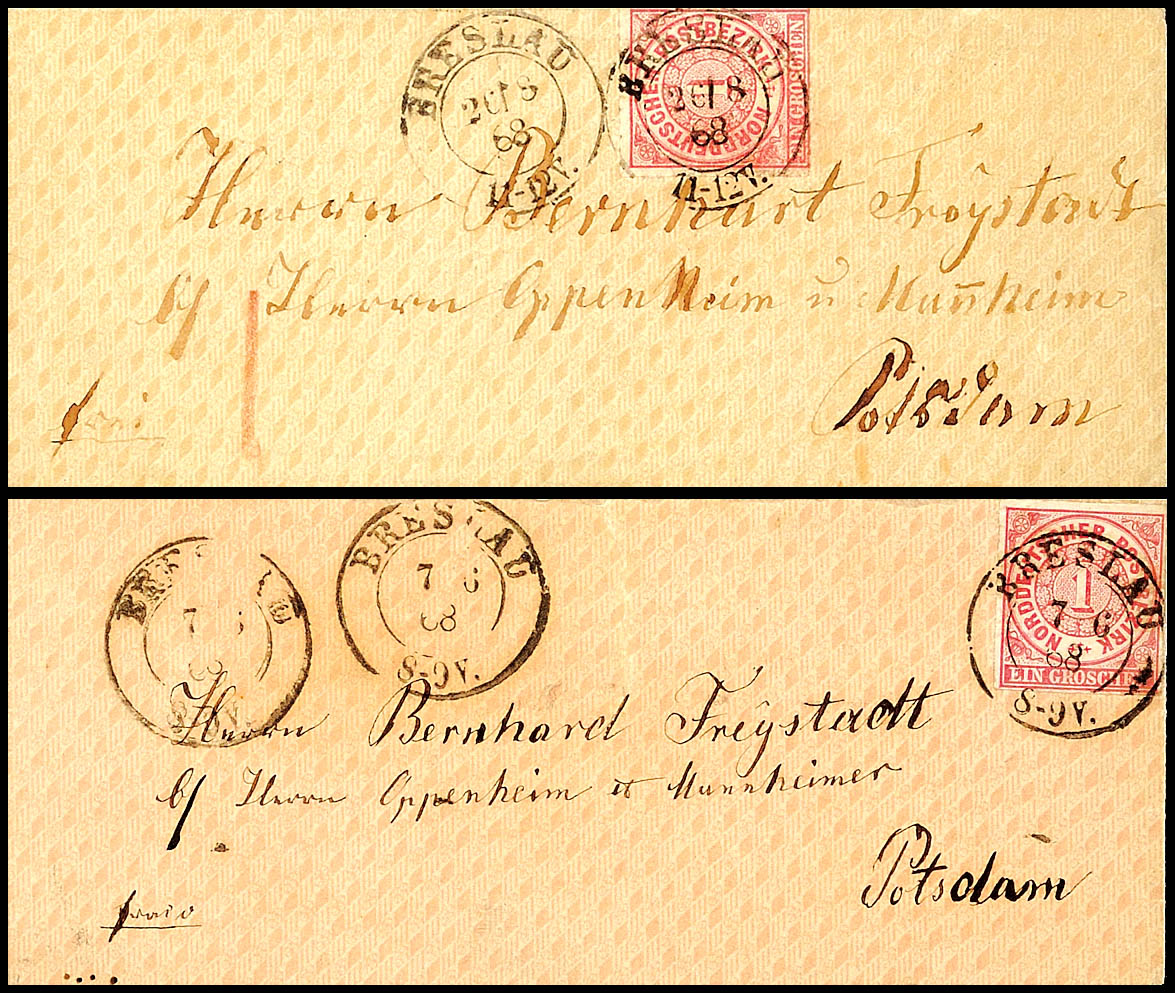 BRESLAU
26 8
68
11-12V.
BRESLAU
26 8
68
11-12V.
NORDDEUTSCHER POSTBEZIRK
EIN GROSCHEN
Herrn Bernhart Freÿstadt
b/ Herrn Oppenheim u Mannheim
Potsdam
frei
BRESLAU
7 6
68
8-9V.
BRESLAU
7 6
68
8-9V.
NORDDEUTSCHER POSTBEZIRK
1
EIN GROSCHEN
BRESLAU
7 6
68
8-9V.
Herrn Bernhard Freÿstadt
b/ Herrn Oppenheim et Mannheimer
Potsdam